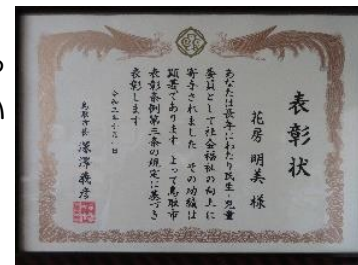 表彰状
花房 明美 様
あなたは長年にわたり民生・児童
委員として社会福祉の向上に
寄与されました その功績は
顕著であります よって鳥取市
表彰条例第三条の規定に基づき
表彰します
鳥取市長 深澤義彦